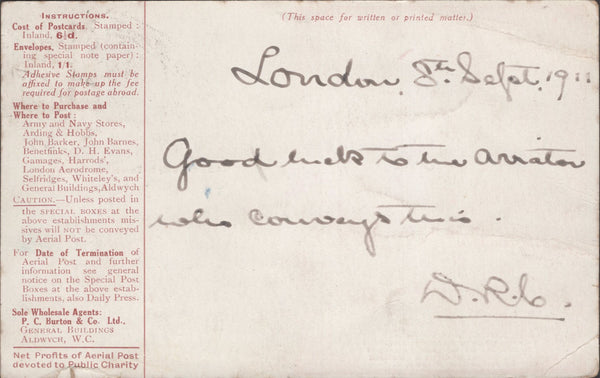 INSTRUCTIONS.
Cost of Postcards, Stamped :
Inland, 6½d.
Envelopes, Stamped (contain-
ing special note paper) :
Inland, 1/1.
Adhesive Stamps must be
affixed to make up the fee
required for postage abroad.
Where to Purchase and
Where to Post :
Army and Navy Stores,
Arding & Hobbs,
John Barker, John Barnes,
Benetfinks, D. H. Evans,
Gamages, Harrods',
London Aerodrome,
Selfridges, Whiteley's, and
General Buildings, Aldwych
CAUTION.—Unless posted in
the SPECIAL BOXES at the
above establishments mis-
sives will NOT be conveyed
by Aerial Post.
For Date of Termination of
Aerial Post and further
information see general
notice on the Special Post
Boxes at the above estab-
lishments, also Daily Press.
Sole Wholesale Agents:
P. C. Burton & Co. Ltd.,
GENERAL BUILDINGS
ALDWYCH, W.C.
Net Profits of Aerial Post
devoted to Public Charity
(This space for written or printed matter.)
London, 8th Sept. 1911
Good luck to the aviator
who conveys this.
D.R.C.